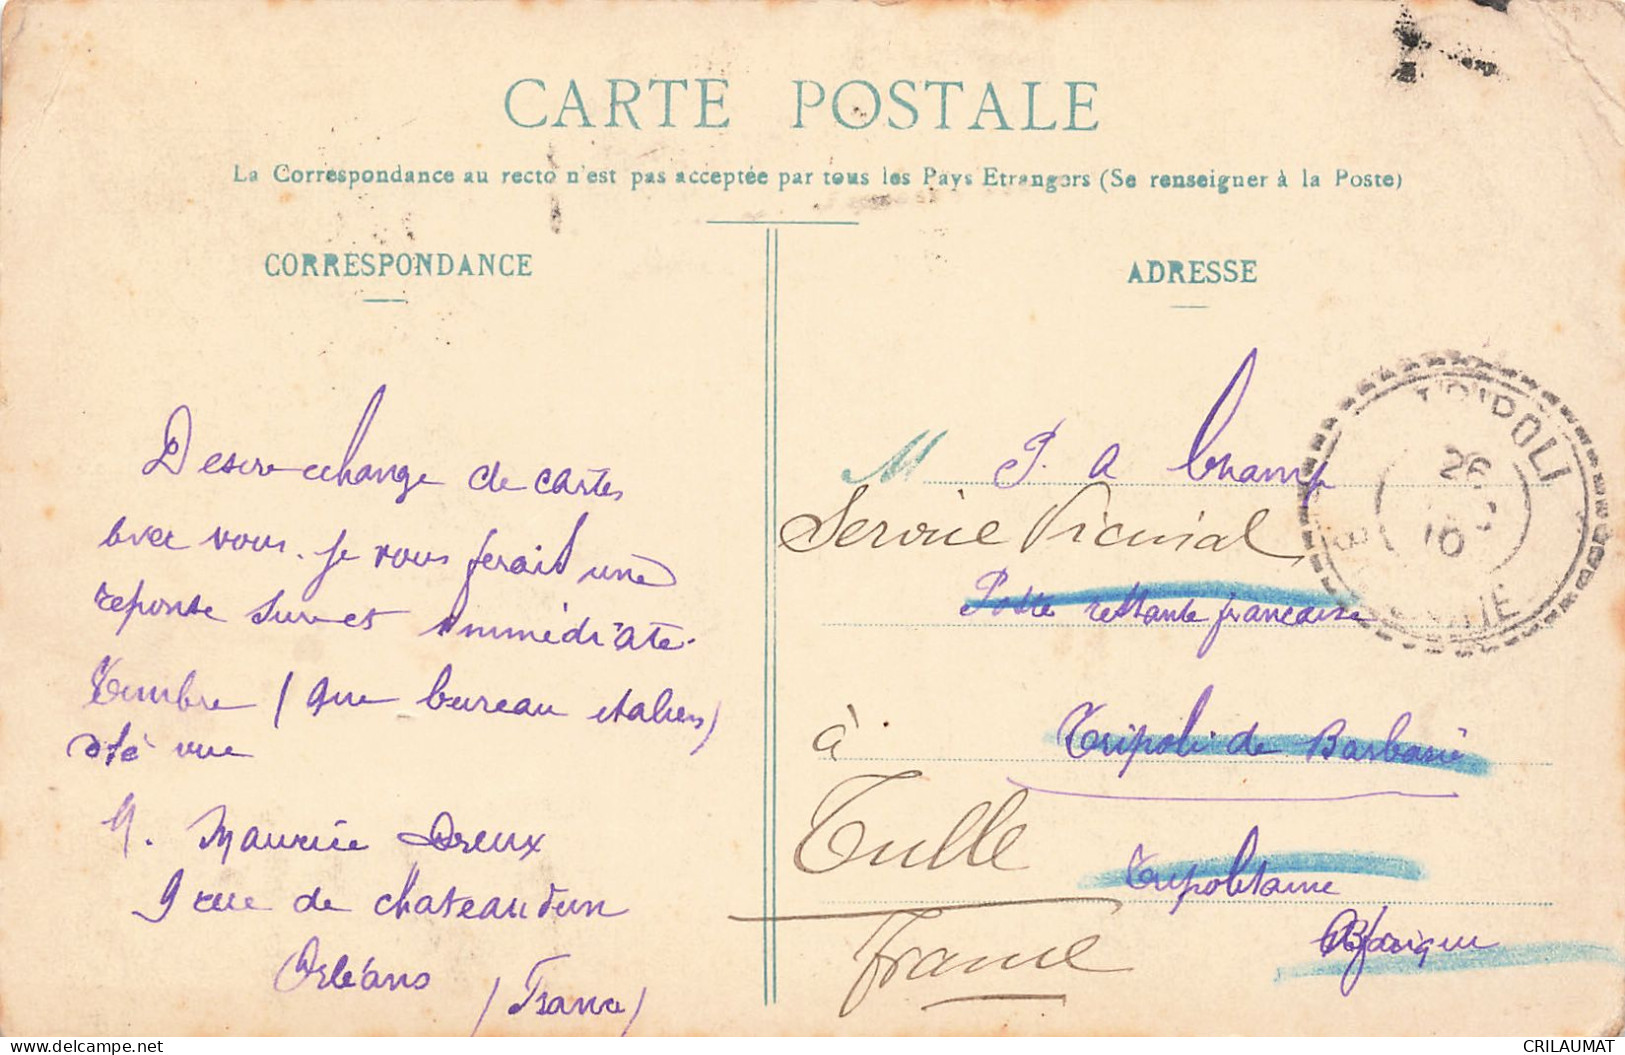 CARTE POSTALE
La Correspondance au recto n'est pas acceptée par tous les Pays Etrangers (Se renseigner à la Poste)
CORRESPONDANCE
Desire echange de cartes
avec vous. Je vous ferait une
reponse sure et immédiate.
Timbre (que bureau italien)
côté vue
M. Maurice Dreux
9 rue de chateaudun
Orléans (France)
ADRESSE
M P. a Champ
Service Vicinal
Poste restante francaise
à Tripoli de Barbarie
Tulle
Tripolitaine
Afrique
France
TRIPOLI
26
10
BARBARIE
delcampe.net
CRILAUMAT